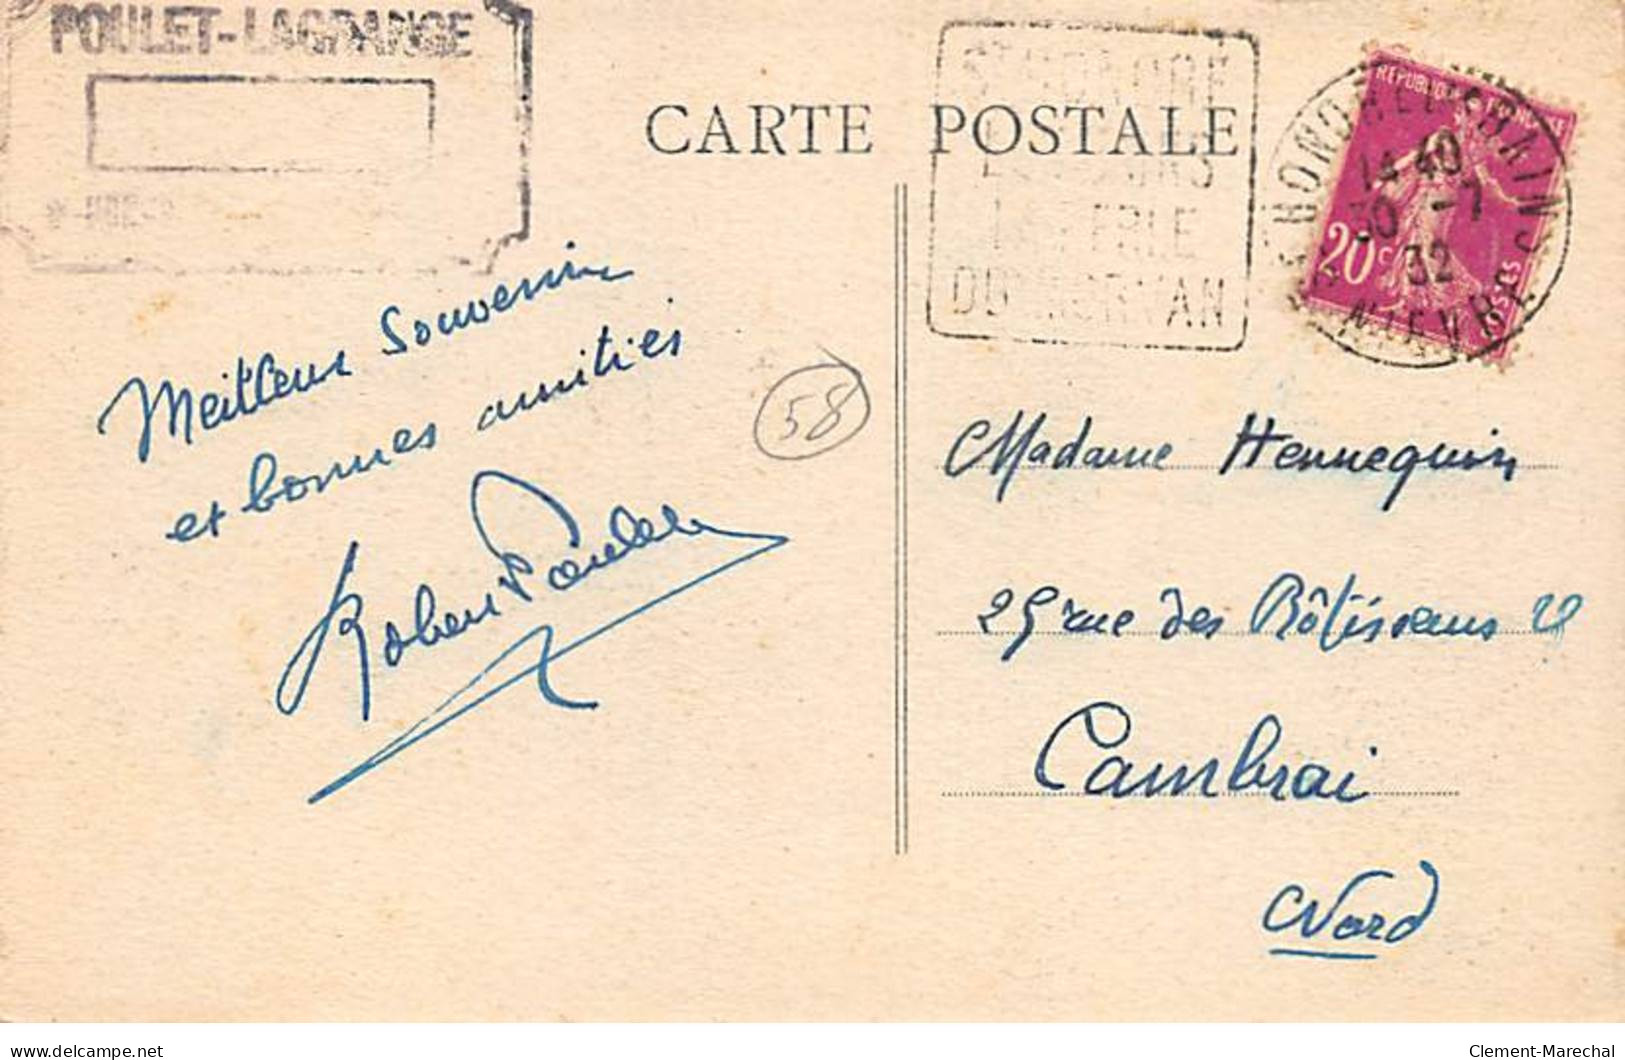 POULET-LAGRANGE
CARTE POSTALE
ST HONORE
LES BAINS
LA PERLE
DU MORVAN
ST HONORE LES BAINS
14 40
30 -7
32
NIEVRE
REPUBLIQUE FRANÇAISE
20c
POSTES
Meilleur Souvenir
et bonnes amitiés
Robert
58
Madame Hennequin
25 rue des Rôtisseurs
Cambrai
Nord
delcampe.net
Clement-Marechal